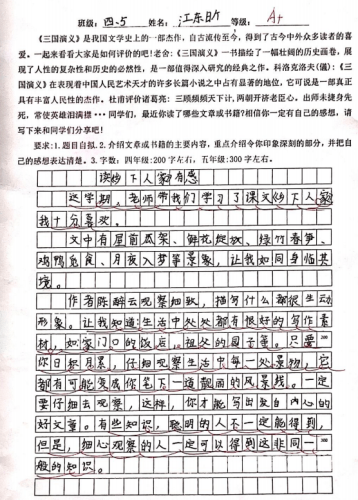 班级：四、5 姓名：江东昕 等级：A+
《三国演义》是我国文学史上的一部杰作，自古流传至今，得到了古今中外众多读者的喜
爱。一起来看看大家是如何评价的吧！老舍：《三国演义》一书描绘了一幅壮阔的历史画卷，展
现了人性的复杂性和历史的必然性，是一部值得深入研究的经典之作。科洛克洛夫（俄）：《三
国演义》在表现着中国人民艺术天才的许多长篇小说之中占有显著的地位，它可说是一部真正
具有丰富人民性的杰作。杜甫评价诸葛亮：三顾频频天下计，两朝开济老臣心。出师未捷身先
死，常使英雄泪满襟……同学们，最近你读了哪些文章或书籍？相信你一定有自己的感想，请
写下来和同学们分享吧！
要求：1.题目自拟。2.介绍文章或书籍的主要内容，重点介绍令你印象深刻的部分，并把自
己的感想表达清楚。3.字数：四年级：200字左右，五年级：300字左右。
读《乡下人家》有感
这学期，老师带我们学习了课文《乡下人家》
我十分喜欢。
文中有屋前瓜架、鲜花绽放、绿竹春笋、
鸡鸭觅食、月夜入梦等景象，让我如同身临其
境。
作者陈醉云观察细致，描写什么都很生动
形象。让我知道：生活中处处都有很好的写作素
材，如：家门口的饭后，祖父的园子里。只要
你日积月累，仔细观察生活中每一处景物，它
都有可能变成你笔下一道靓丽的风景线。一定
要仔细去观察，这样，你才能写出发自内心的
好文章。有些知识，聪明的人不一定能得到，
但是，细心观察的人一定可以得到这非同一
般的知识。